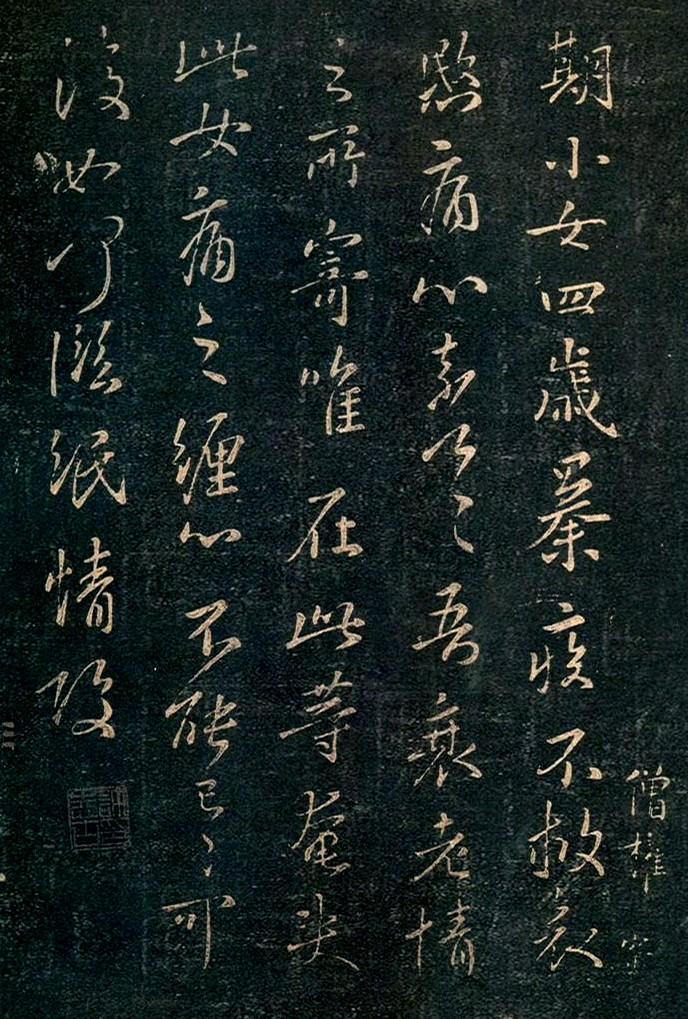 僧權 察
期小女四歲暴疾不救哀
愍痛心奈何〻吾衰老情
之所寄唯在此等奄失
此女痛之纏心不能已〻可
復如何臨紙情酸